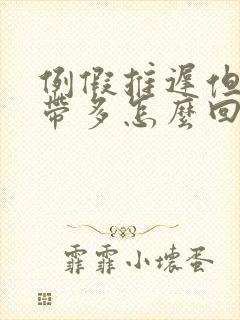 例假推遲但
帶多怎麼回
霏霏小壞蛋